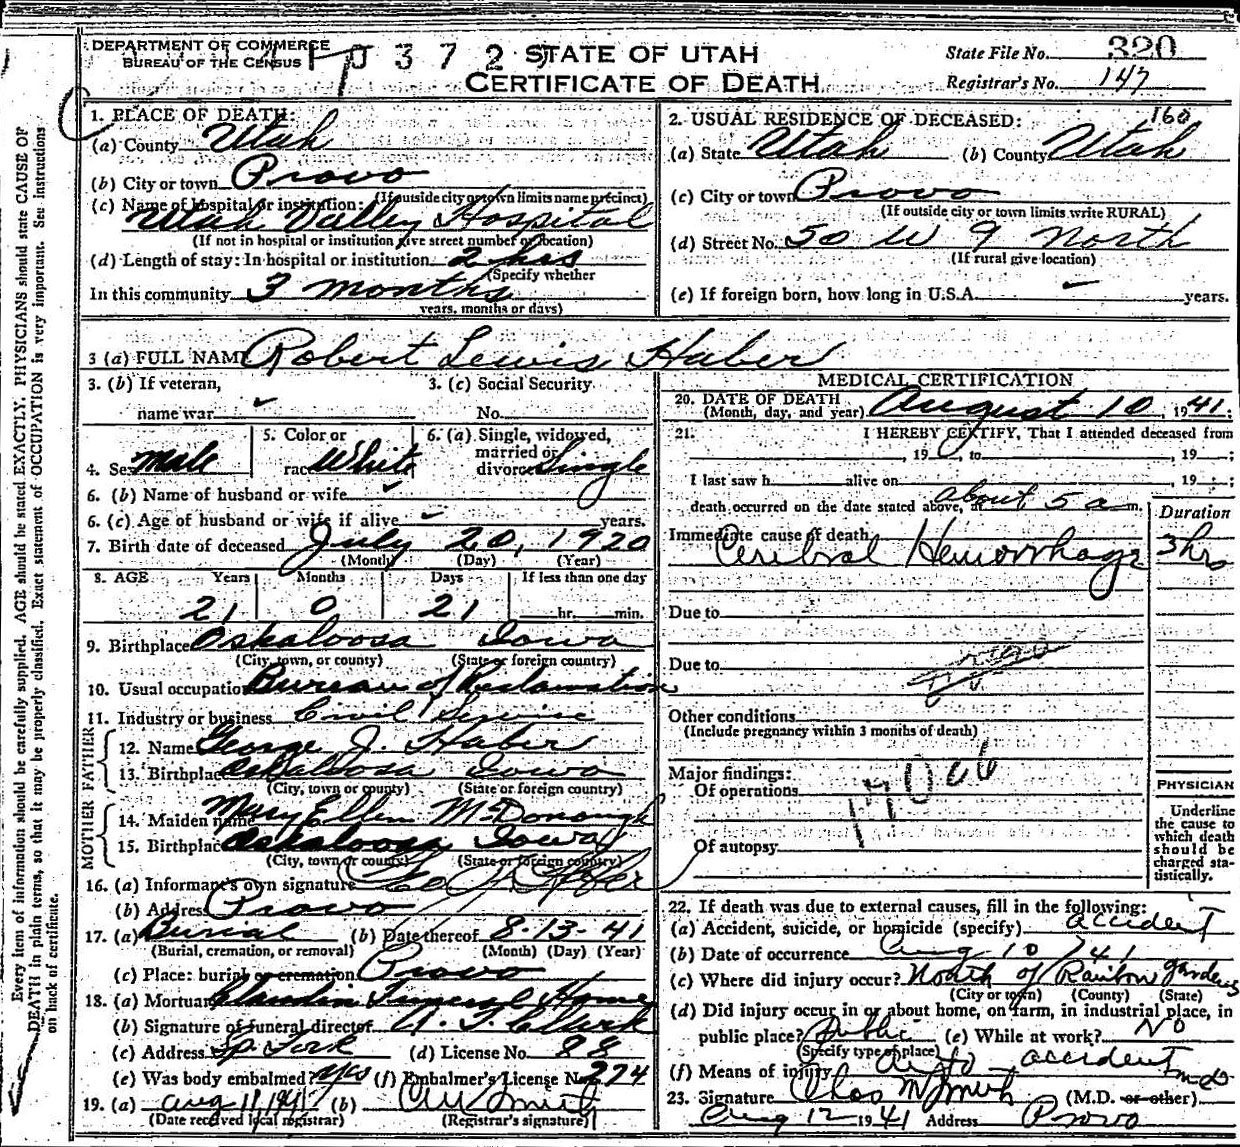 DEPARTMENT OF COMMERCE
BUREAU OF THE CENSUS
0 3 7 2
STATE OF UTAH
CERTIFICATE OF DEATH
State File No. 320
Registrar's No. 147
Every item of information should be carefully supplied. AGE should be stated EXACTLY. PHYSICIANS should state CAUSE OF
DEATH in plain terms, so that it may be properly classified. Exact statement of OCCUPATION is very important. See instructions
on back of certificate.
1. PLACE OF DEATH:
(a) County Utah
(b) City or town Provo
(If outside city or town limits name precinct)
(c) Name of hospital or institution:
Utah Valley Hospital
(If not in hospital or institution give street number or location)
(d) Length of stay: In hospital or institution 2 hrs
(Specify whether
In this community 3 months
years, months or days)
2. USUAL RESIDENCE OF DECEASED: 160
(a) State Utah (b) County Utah
(c) City or town Provo
(If outside city or town limits write RURAL)
(d) Street No. 50 W 9 North
(If rural give location)
(e) If foreign born, how long in U.S.A. years.
3 (a) FULL NAME Robert Lewis Haber
3. (b) If veteran,
name war
3. (c) Social Security
No.
4. Sex Male
5. Color or
race White
6. (a) Single, widowed,
married or
divorced Single
6. (b) Name of husband or wife
6. (c) Age of husband or wife if alive years.
7. Birth date of deceased July 20, 1920
(Month) (Day) (Year)
8. AGE Years Months Days If less than one day
21 0 21 hr. min.
9. Birthplace Oskaloosa Iowa
(City, town, or county) (State or foreign country)
10. Usual occupation Bureau of Reclamation
11. Industry or business Civil Service
FATHER
12. Name George J. Haber
13. Birthplace Oskaloosa Iowa
(City, town or county) (State or foreign country)
MOTHER
14. Maiden name Mary Ellen McDonough
15. Birthplace Oskaloosa Iowa
(City, town or county) (State or foreign country)
16. (a) Informant's own signature Geo J. Haber
(b) Address Provo
17. (a) Burial (b) Date thereof 8-13-41
(Burial, cremation, or removal) (Month) (Day) (Year)
(c) Place: burial or cremation Provo
18. (a) Mortuary Claudin Funeral Home
(b) Signature of funeral director A. T. Clark
(c) Address Sp. Fork (d) License No. 88
(e) Was body embalmed? yes (f) Embalmer's License No. 274
19. (a) Aug 11, 1941 (b)
(Date received local registrar) (Registrar's signature)
MEDICAL CERTIFICATION
20. DATE OF DEATH
(Month, day, and year) August 10, 1941;
21. I HEREBY CERTIFY, That I attended deceased from
, 19 , to , 19 ;
I last saw h alive on , 19 ;
death occurred on the date stated above, at about 5 a m.
Duration
Immediate cause of death
Cerebral Hemorrhage 3 hrs
Due to
Due to
Other conditions
(Include pregnancy within 3 months of death)
Major findings:
Of operations
Of autopsy
PHYSICIAN
Underline
the cause to
which death
should be
charged sta-
tistically.
22. If death was due to external causes, fill in the following:
(a) Accident, suicide, or homicide (specify) accident
(b) Date of occurrence Aug 10 / 41
(c) Where did injury occur? North of Rainbow gardens
(City or town) (County) (State)
(d) Did injury occur in or about home, on farm, in industrial place, in
public place? Public (e) While at work? No
(Specify type of place)
(f) Means of injury auto accident
23. Signature Chas M Smith (M.D. or other) MD
Aug 12 1941 Address Provo